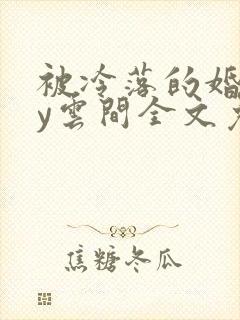 被冷落的婚
y雲間全文
焦糖冬瓜